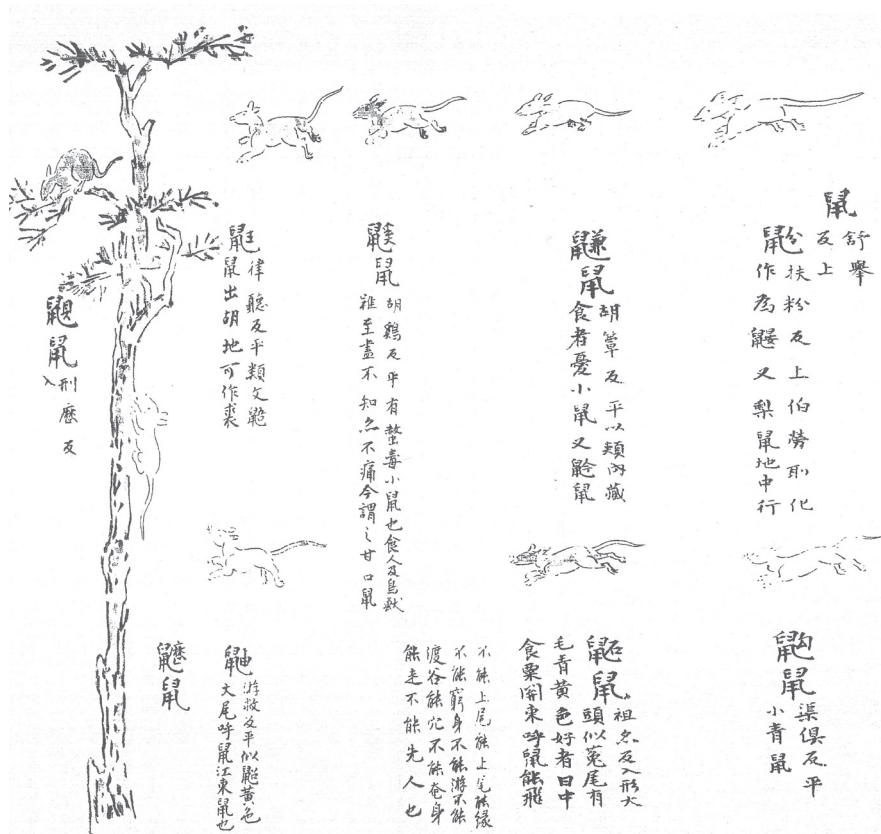 鼠
舒舉
反上
鼢
扶粉反上伯勞所化
作為鼴又梨鼠地中行
鼸鼠
胡簟反平以頬內藏
食者憂小鼠又鼠
鼷鼠
胡鷄反平有螫毒小鼠也食人及鳥獸
雖至盡不知亦不痛今謂之甘口鼠
鼮
律聽反平類文
鼠出胡地可作裘
鼳鼠
刑歷反
入
鼩鼠
渠俱反平
小青鼠
鼫鼠
祖亦反入形大
頭似菟尾有
毛青黄色好者田中
食粟関東呼鼠能飛
不能上尾能上屋能緣
不能窮身不能游不能
渡谷能穴不能奄身
能走不能先人也
鼬
游救反平似鼬黃色
大尾呼鼠江東鼠也
鼠